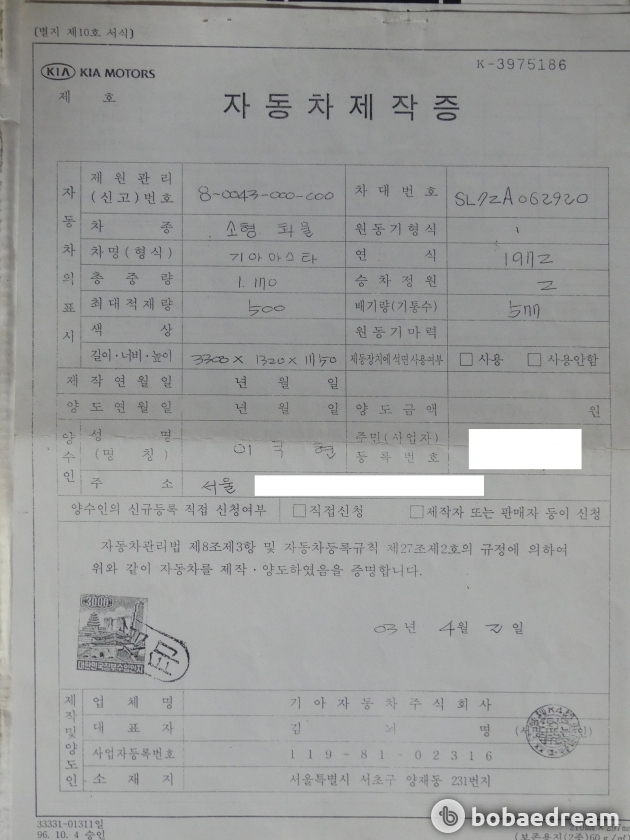 [별지 제10호 서식]
KIA KIA MOTORS
K-3975186
제 호
자동차제작증
자동차의표시
제원관리(신고)번호 8-0043-000-000 차대번호 SL72A062920
차종 소형 화물 원동기형식
차명(형식) 기아마스타 연식 1972
총중량 1.170 승차정원 2
최대적재량 500 배기량(기통수) 577
색상 원동기마력
길이·너비·높이 3300 × 1320 × 1750 제동장치에 석면사용여부 □ 사용 □ 사용안함
제작연월일 년 월 일
양도연월일 년 월 일 양도금액 원
양수인
성명(명칭) 이국현 주민(사업자)등록번호
주소 서울
양수인의 신규등록 직접 신청여부 □직접신청 □제작자 또는 판매자 등이 신청
자동차관리법 제8조제3항 및 자동차등록규칙 제27조제2호의 규정에 의하여
위와 같이 자동차를 제작·양도하였음을 증명합니다.
3000
대한민국정부수입인지
03년 4월 2일
제작및양도인
업체명 기아자동차주식회사
대표자 김뇌명
사업자등록번호 119-81-02316
소재지 서울특별시 서초구 양재동 231번지
33331-01311일
96. 10. 4 승인
bobaedream